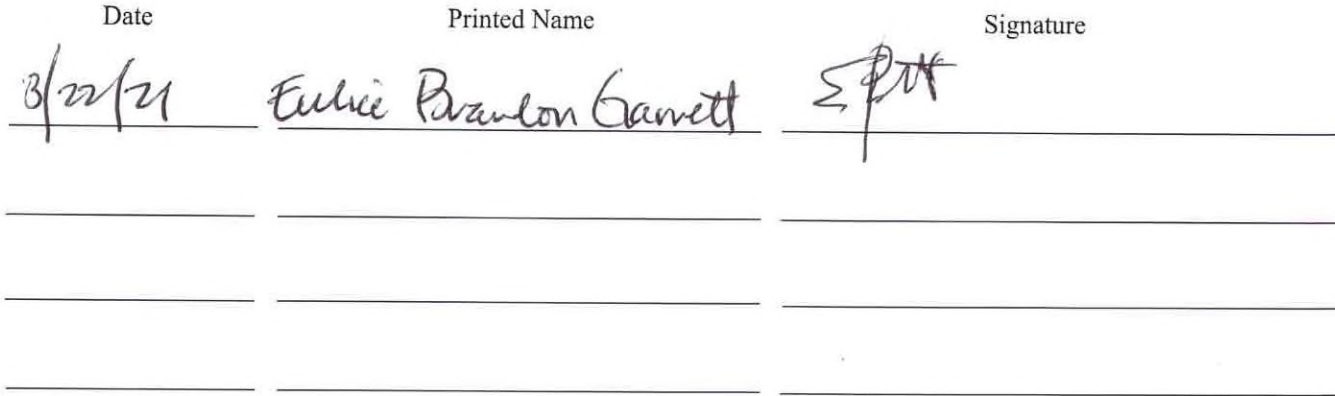 Date Printed Name Signature
3/22/21 Brandon Garrett